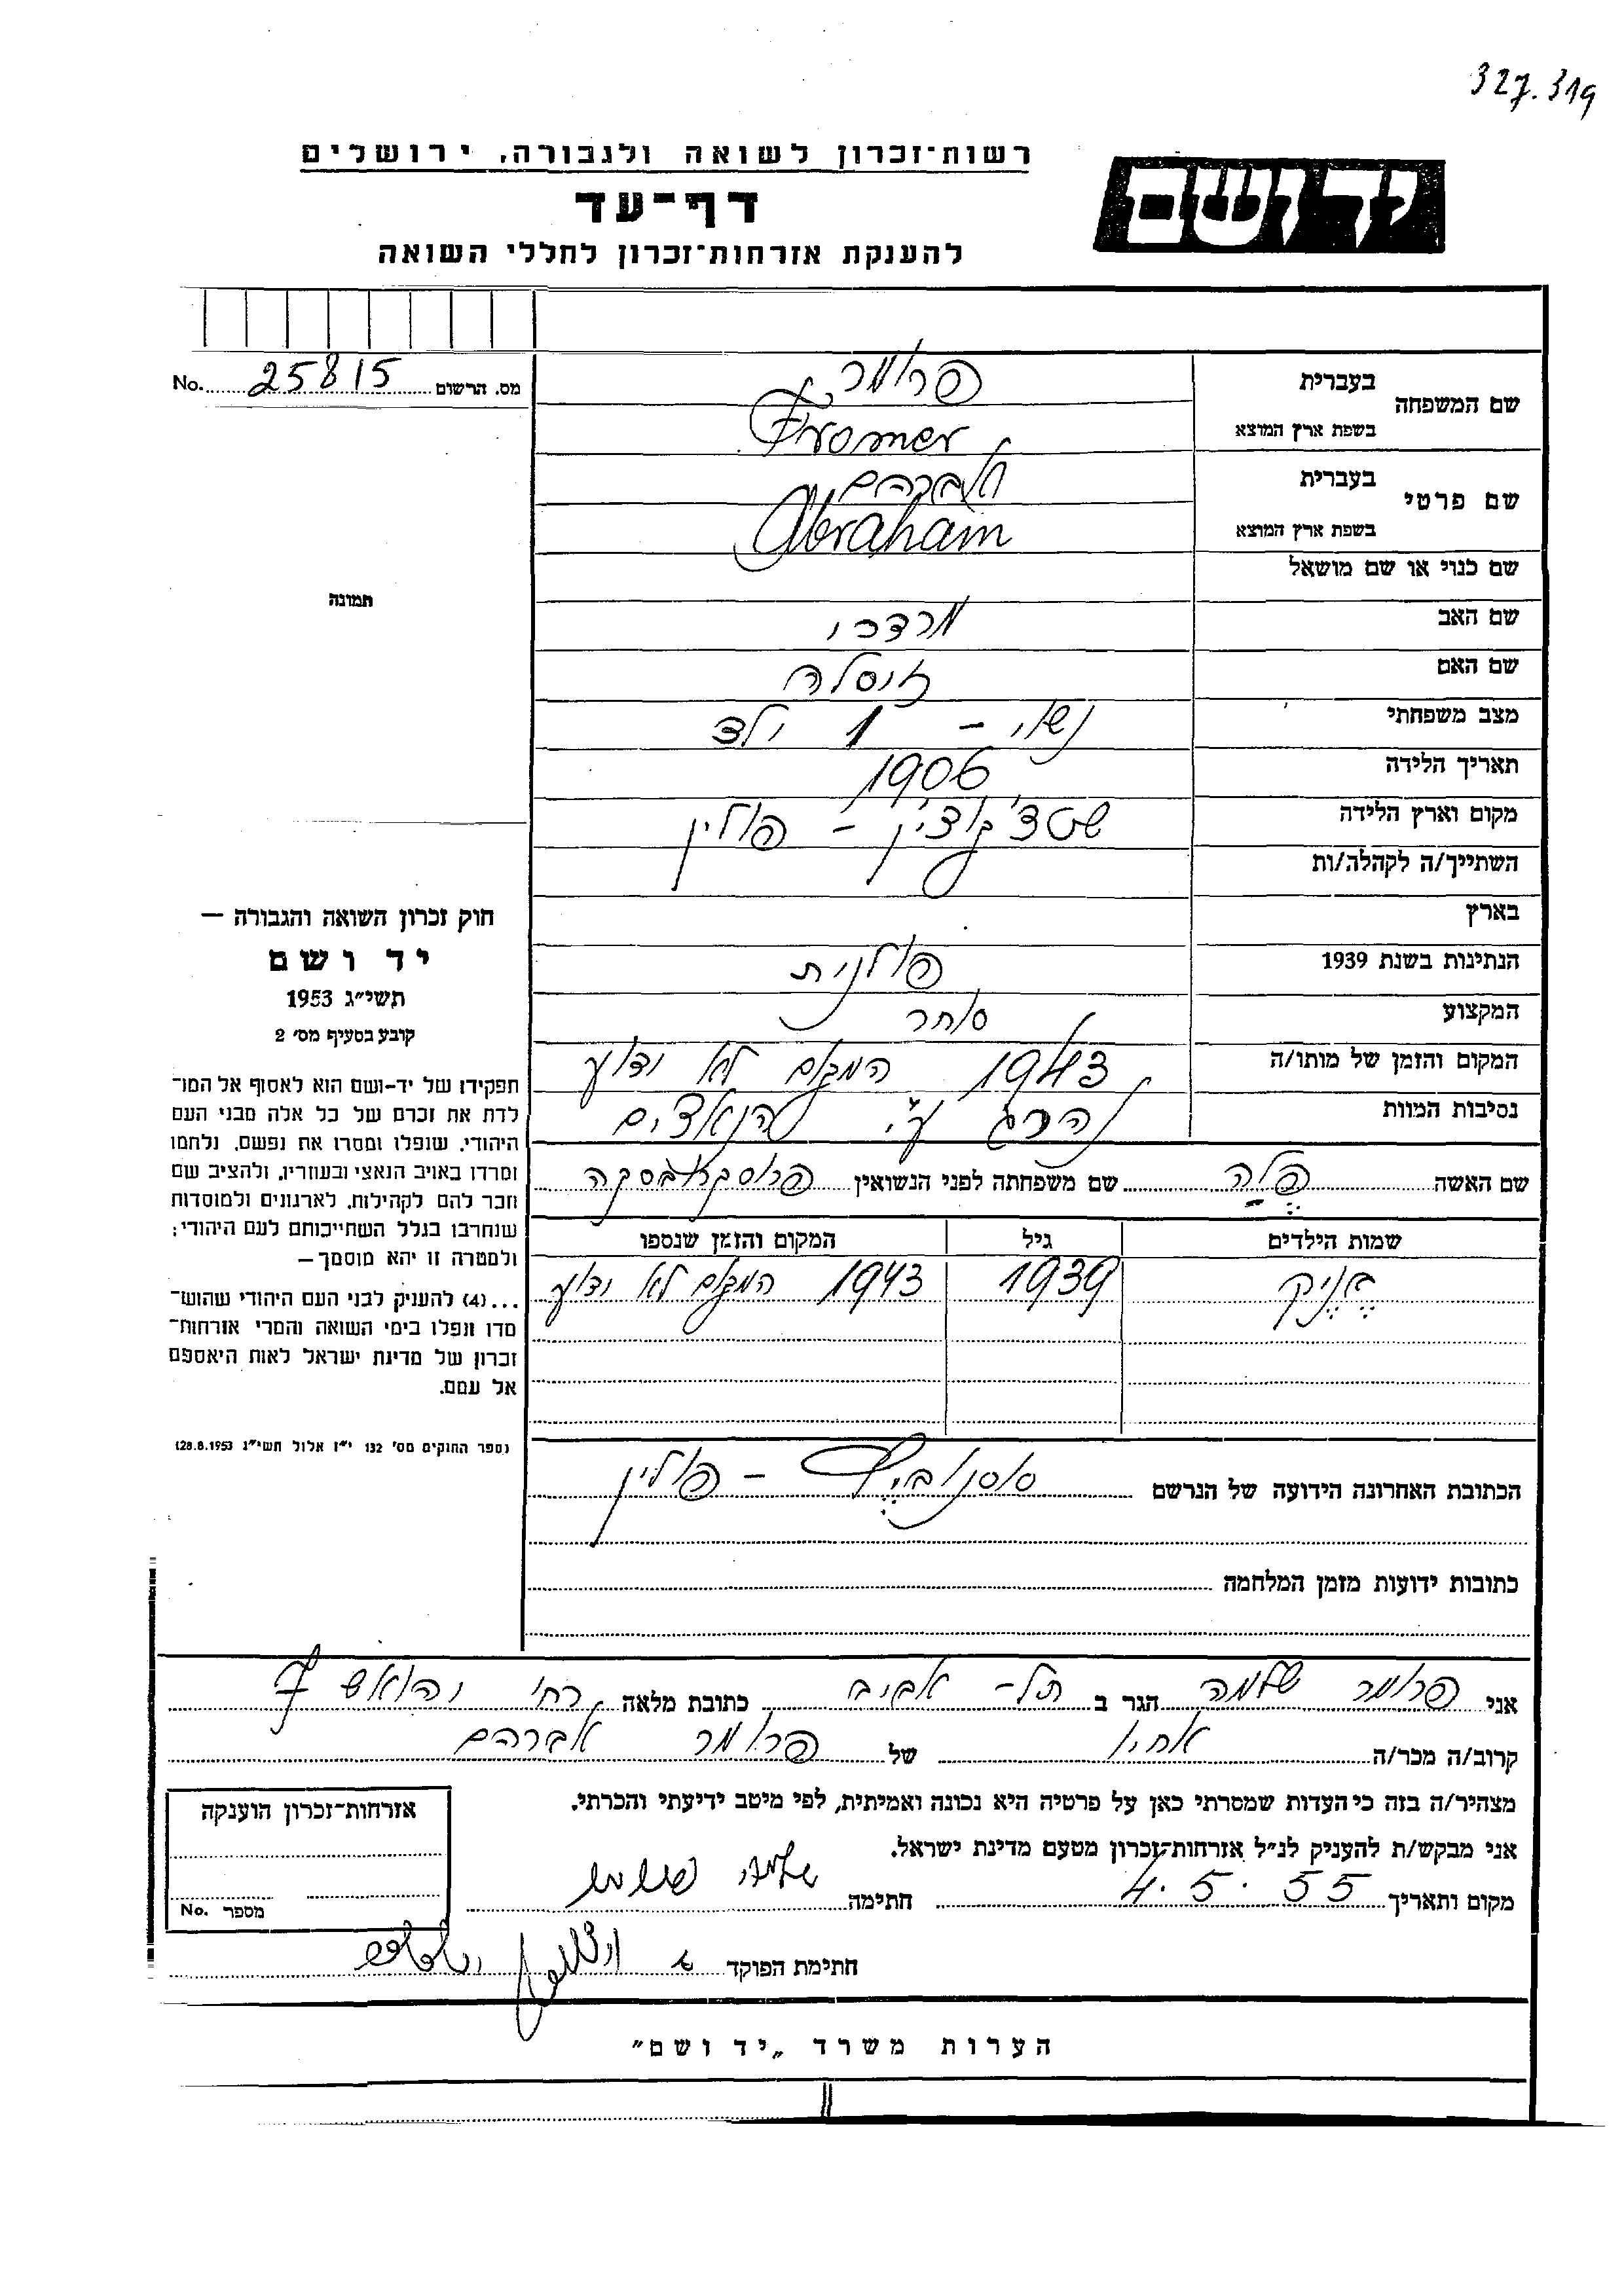 327.319
רשות־זכרון לשואה ולגבורה, ירושלים
יד ושם
דף־עד
להענקת אזרחות־זכרון לחללי השואה
מס. הרשום 25815 No.
שם המשפחה בעברית פרומר
בשפת ארץ המוצא Fromer
שם פרטי בעברית אברהם
בשפת ארץ המוצא Abraham
שם כנוי או שם מושאל
תמונה
שם האב מרדכי
שם האם זיסלה
מצב משפחתי נשוי - 1 ילד
תאריך הלידה 1906
מקום וארץ הלידה שצ'קוצ'ין - פולין
השתייך/ה לקהלה/ות
בארץ
הנתינות בשנת 1939 פולנית
המקצוע סוחר
המקום והזמן של מותו/ה 1943 המקום לא ידוע
נסיבות המוות נהרג ע"י הנאצים
שם האשה פלה שם משפחתה לפני הנשואין פרוסקרובסקה
שמות הילדים גיל המקום והזמן שנספו
1939 1943 המקום לא ידוע
חוק זכרון השואה והגבורה —
יד ושם
תשי״ג 1953
קובע בסעיף מס׳ 2
תפקידו של יד-ושם הוא לאסוף אל המו־
לדת את זכרם של כל אלה מבני העם
היהודי, שנפלו ומסרו את נפשם, נלחמו
ומרדו באויב הנאצי ובעוזריו, ולהציב שם
וזכר להם לקהילות, לארגונים ולמוסדות
שנחרבו בגלל השתייכותם לעם היהודי;
ולמטרה זו יהא מוסמך—
...(4) להעניק לבני העם היהודי שהוש־
מדו ונפלו בימי השואה והמרי אזרחות־
זכרון של מדינת ישראל לאות היאספם
אל עמם.
(ספר החוקים מס׳ 132 י״ז אלול תשי״ג 28.8.1953)
הכתובת האחרונה הידועה של הנרשם סוסנוביץ - פולין
כתובות ידועות מזמן המלחמה
אני פרומר שלמה הגר ב תל-אביב כתובת מלאה רח' יהואש 4
קרוב/ה מכר/ה אחיו של פרומר אברהם
מצהיר/ה בזה כי העדות שמסרתי כאן על פרטיה היא נכונה ואמיתית, לפי מיטב ידיעתי והכרתי.
אני מבקש/ת להעניק לנ״ל אזרחות־זכרון מטעם מדינת ישראל.
מקום ותאריך 4.5.55 חתימה
חתימת הפוקד
אזרחות־זכרון הוענקה
מספר No.
הערות משרד „יד ושם״